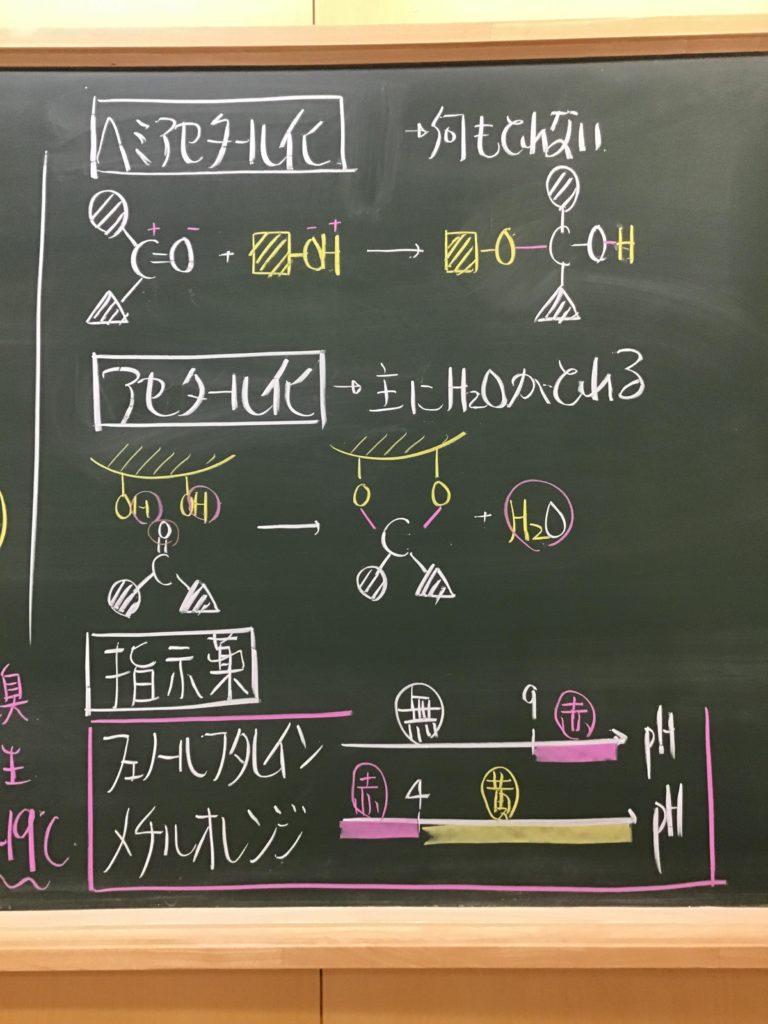 ヘミアセタール化 →何もとれない
C=O + -OH → -O-C-O-H
+ - - +
アセタール化 → 主にH₂Oがとれる
OH OH → O O + H₂O
O
C C
指示薬
フェノールフタレイン 無 9 赤 pH
メチルオレンジ 赤 4 黄 pH
臭
生
19℃